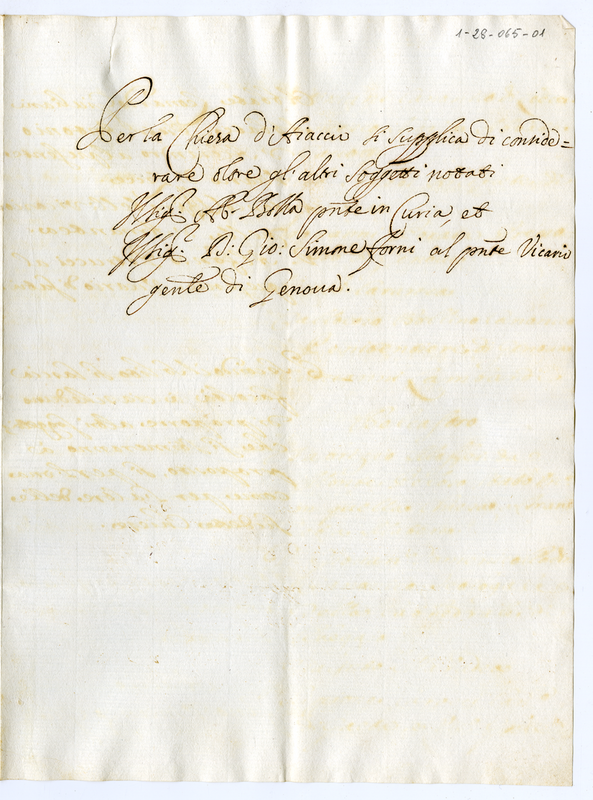 1-28-065-01
Per la Chiesa d'Aiaccio si supplica di conside=
rare oltre gl'altri soggetti notati
Ab.e Botta pnte in Curia, et
D: Gio: Simone Forni al pnte Vicario
genle di Genova.